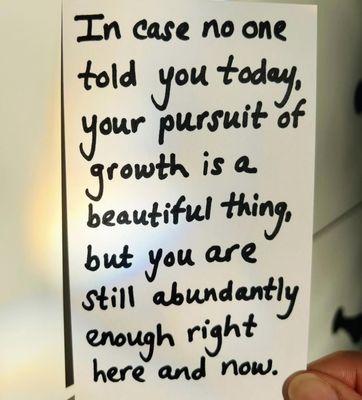 In case no one
told you today,
your pursuit of
growth is a
beautiful thing,
but you are
still abundantly
enough right
here and now.